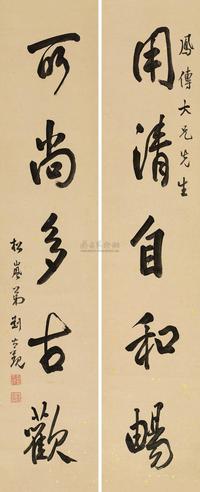 鳳傳大兄先生
用清自和暢
所尚多古歡
松嵐弟劉大觀